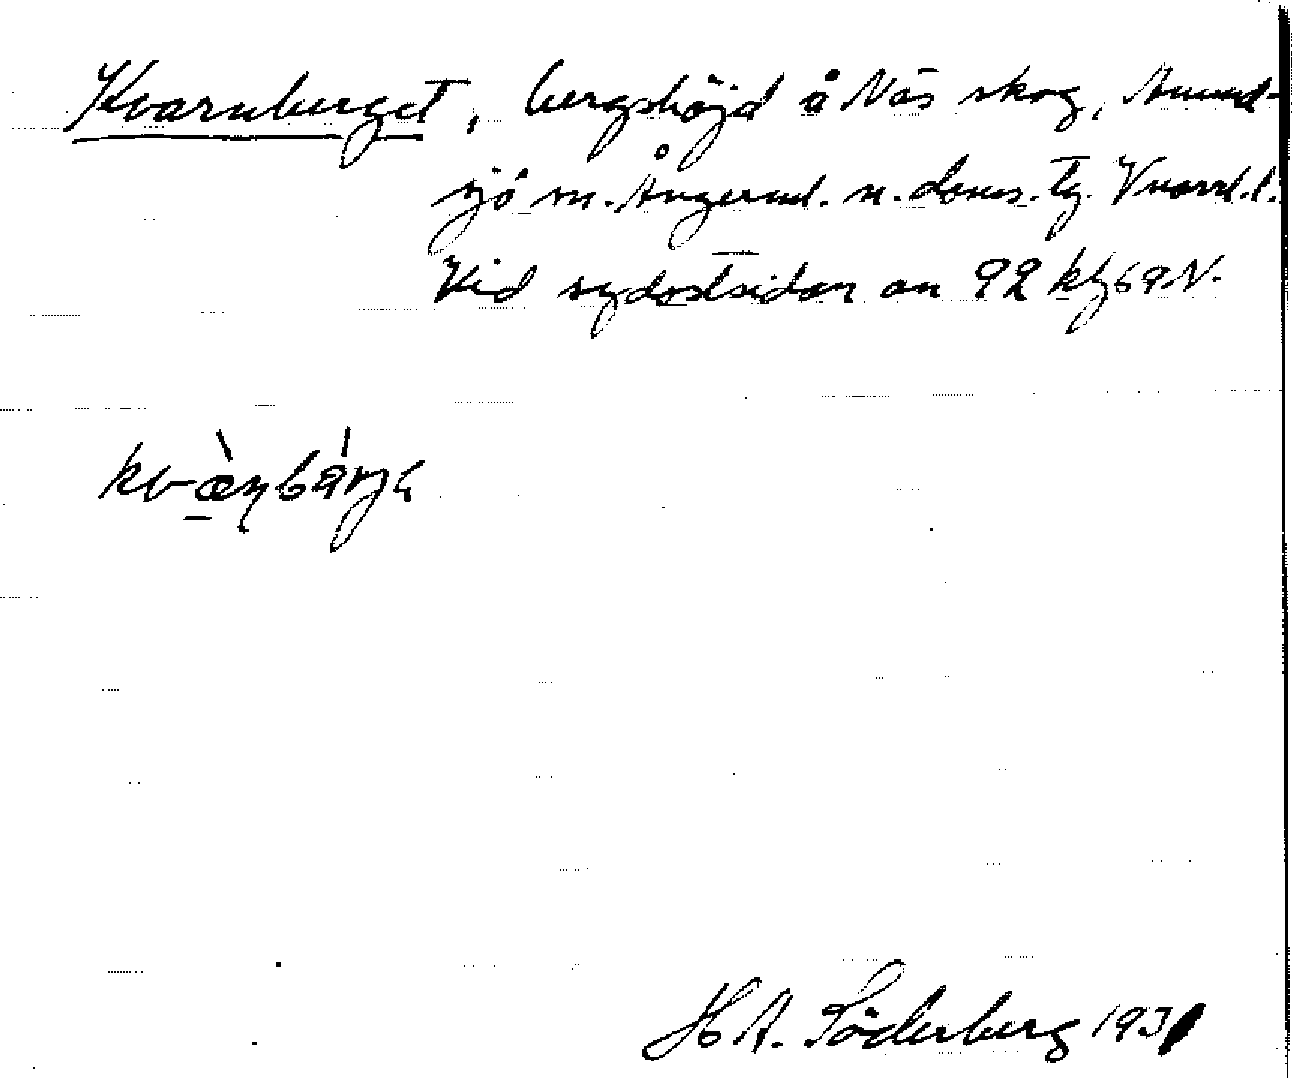 Kvarnberget, bergshöjd å Näs skog, Anund-
sjö sn. Ångerml. n. doms. tg. Vnorrl. l.
Vid sydostsidan av 92 kbl 69 N.
kvæ̀ṇbárjə
H A. Söderberg 1931